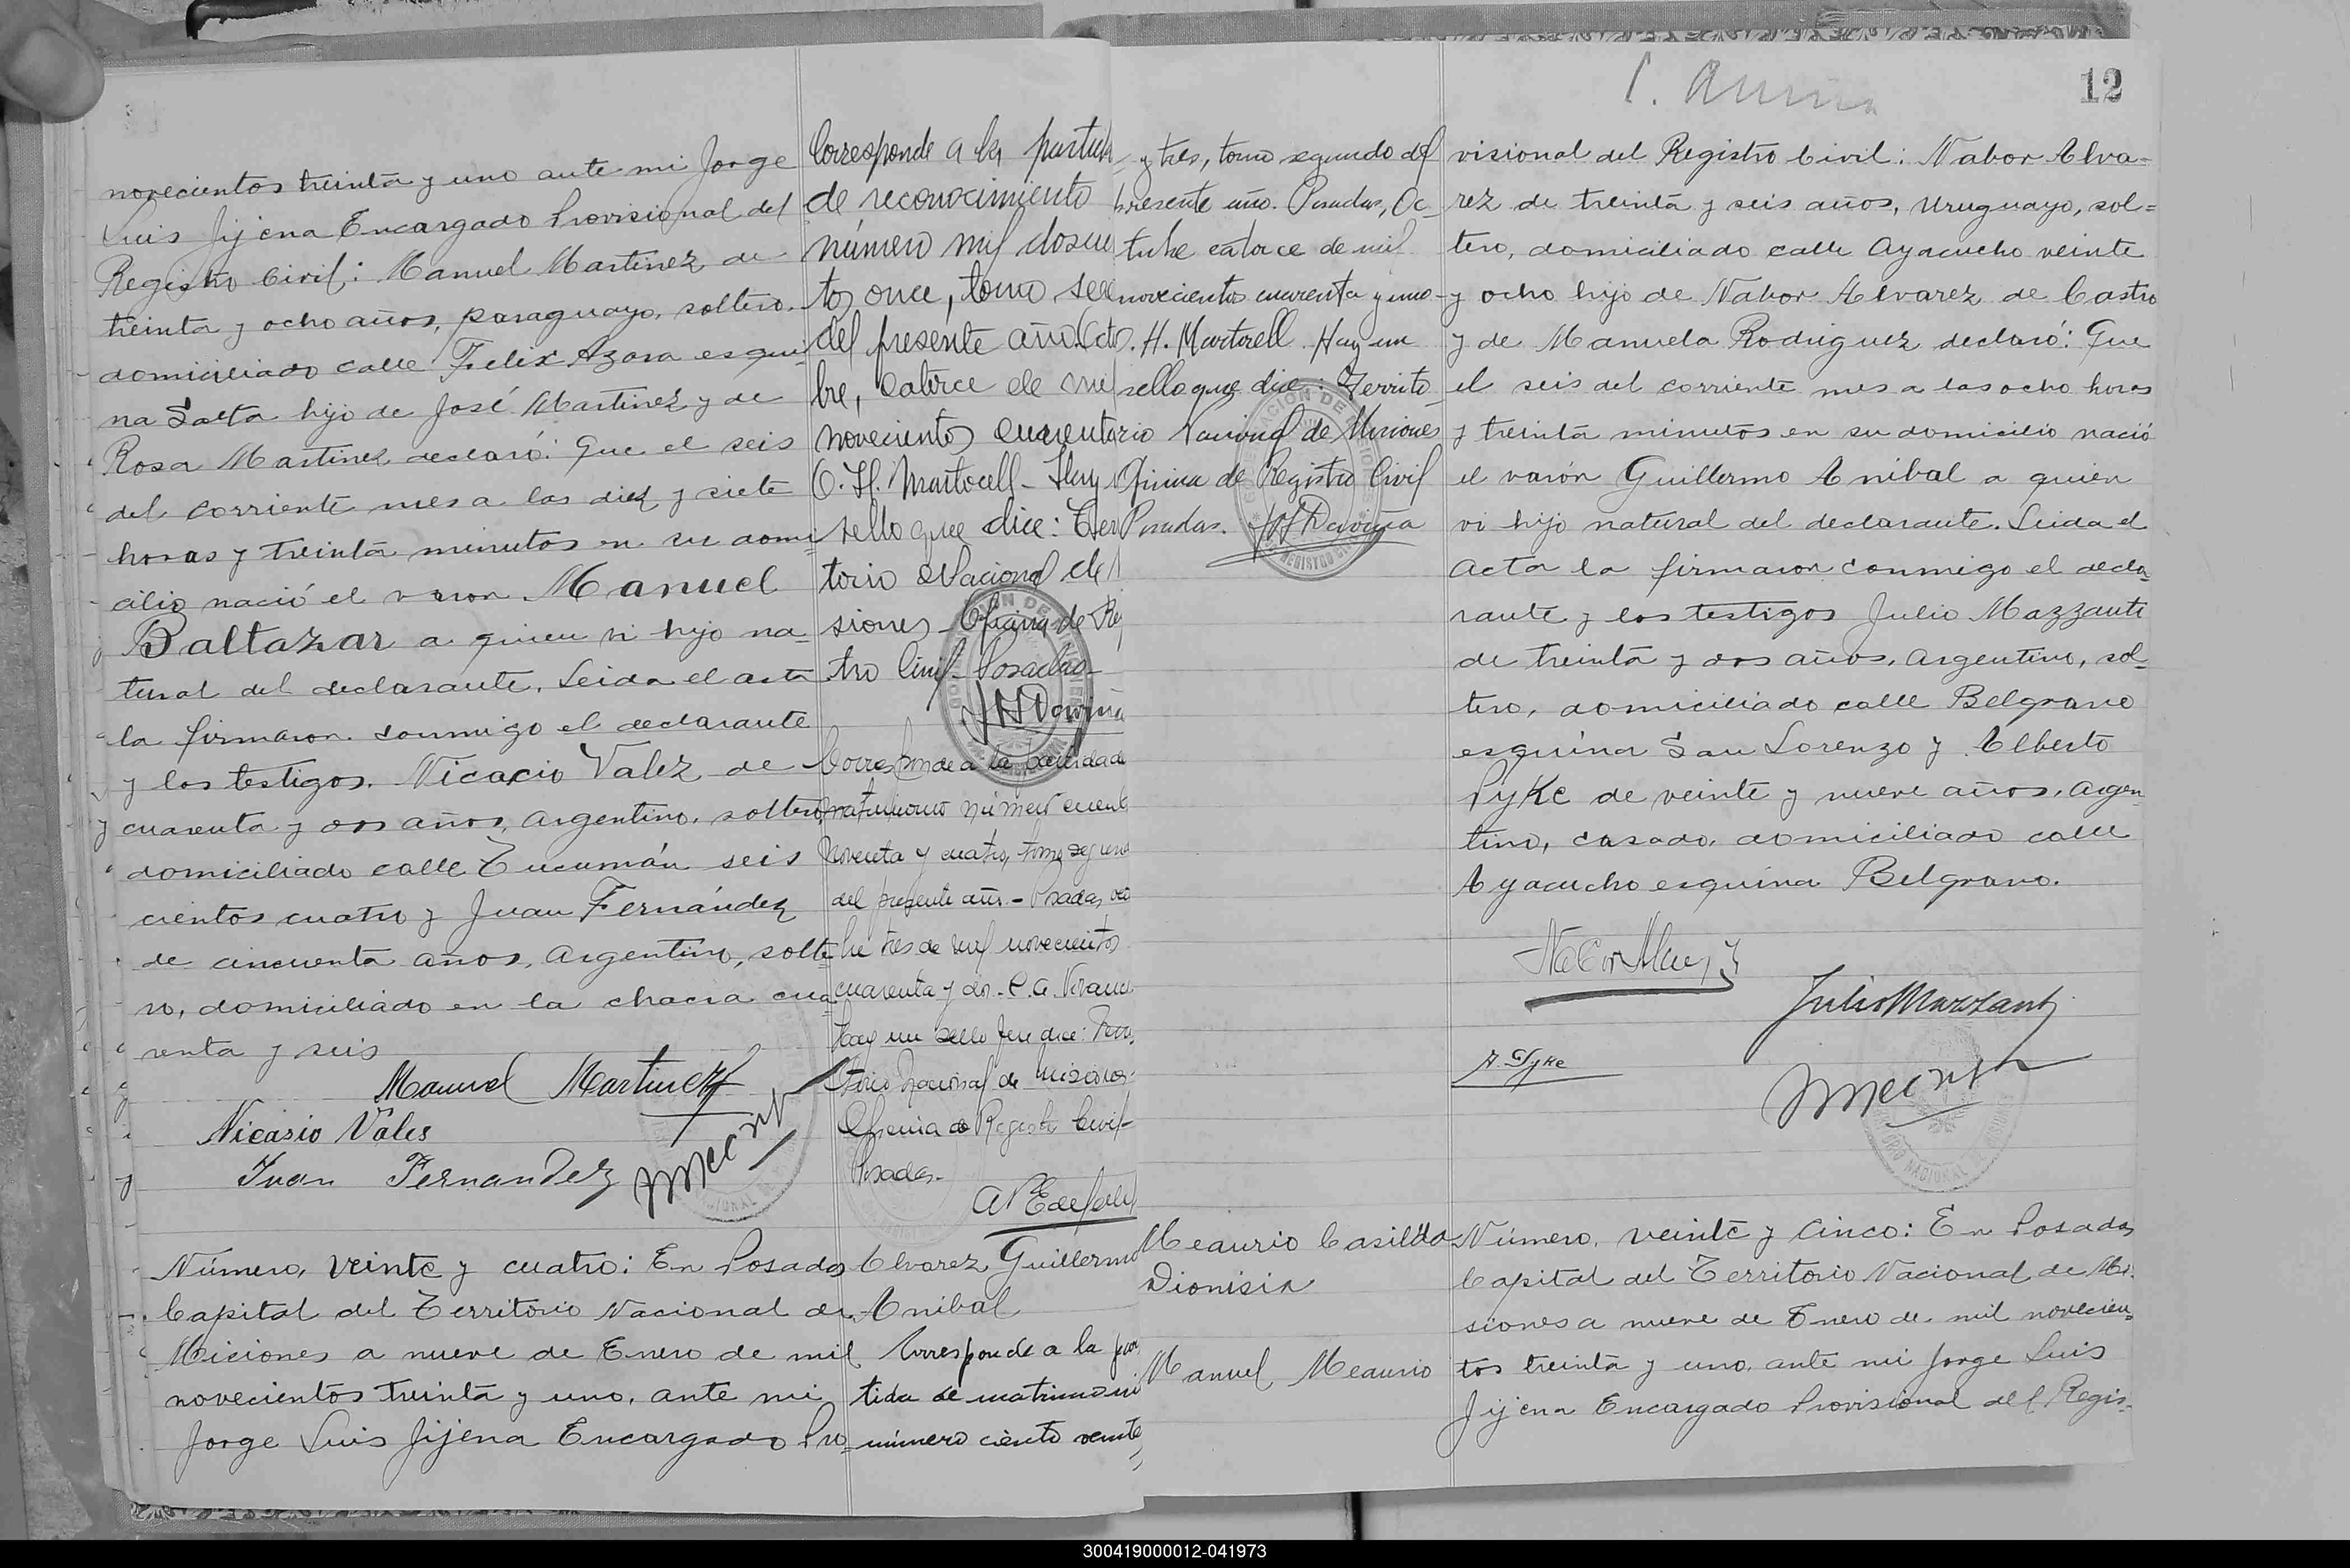 novecientos treinta y uno ante mi Jorge
Luis Jijena Encargado Provisional del
Registro Civil: Manuel Martinez de
treinta y ocho años, paraguayo, soltero.
domiciliado calle Felix Azara esqui
na Salta hijo de José Martinez y de
Rosa Martinez declaró: Que el seis
del corriente mes a las diez y siete
horas y treinta minutos en su domi
cilio nació el varon Manuel
Baltazar a quien vi hijo na-
tural del declarante. Leida el acta
la firmaron conmigo el declarante
y los testigos. Nicacio Valez de
cuarenta y dos años, argentino, soltero,
domiciliado calle Tucumán seis
cientos cuatro y Juan Fernández
de cincuenta años, argentino, solte
ro, domiciliado en la chacra cua
renta y seis
Manuel Martinez
Nicasio Vales
Juan Fernandez
Número, veinte y cuatro: En Posadas
Capital del Territorio Nacional de
Miciones a nueve de Enero de mil
novecientos treinta y uno, ante mi
Jorge Luis Jijena Encargado Pro=
Corresponde a la partida
de reconocimiento
número mil doscien
tos once, tomo
del presente año. Octu
bre, catorce de mil
novecientos cuarenta
C. H. Martorell - Hay
sello que dice: Terri
torio Nacional de
siones - Oficina de Re
tro Civil - Posadas -
Corresponde a la
matrimonio número
noventa y cuatro, tomo segun
del presente año. - Posadas,
bre tres de mil novecientos
cuarenta y dos -
Hay un sello que dice: Terri
torio Nacional de Misiones -
Oficina de Registro Civil -
Posadas -
Alvarez Guillermo
Anibal
Corresponde a la par
tida de matrimoni
número ciento veinte
12
y tres, tomo segundo del
presente año. Posadas, Oc-
tubre catorce de mil
novecientos cuarenta y uno -
H. Martorell. Hay un
sello que dice: Territo
rio Nacional de Misiones
Oficina de Registro Civil
Posadas.
Meaurio Casilda
Dionisia
Manuel Meaurio
visional del Registro Civil: Nabor Alva=
rez de treinta y seis años, uruguayo, sol=
tero, domiciliado calle Ayacucho veinte
y ocho hijo de Nabor Alvarez de Castro
y de Manuela Rodriguez declaró: Que
el seis del corriente mes a las ocho horas
y treinta minutos en su domicilio nació
el varón Guillermo Anibal a quien
vi hijo natural del declarante. Leida el
acta la firmaron conmigo el decla
rante y los testigos Julio Mazzanti
de treinta y dos años, argentino, sol
tero, domiciliado calle Belgrano
esquina San Lorenzo y Alberto
Pyke de veinte y nueve años, argen
tino, casado, domiciliado calle
Ayacucho esquina Belgrano.
Julio Mazzanti
A. Pyke
Número, veinte y cinco: En Posadas
Capital del Territorio Nacional de Mi
siones a nueve de Enero de mil novecien
tos treinta y uno, ante mi Jorge Luis
Jijena Encargado Provisional del Regis-
300419000012-041973